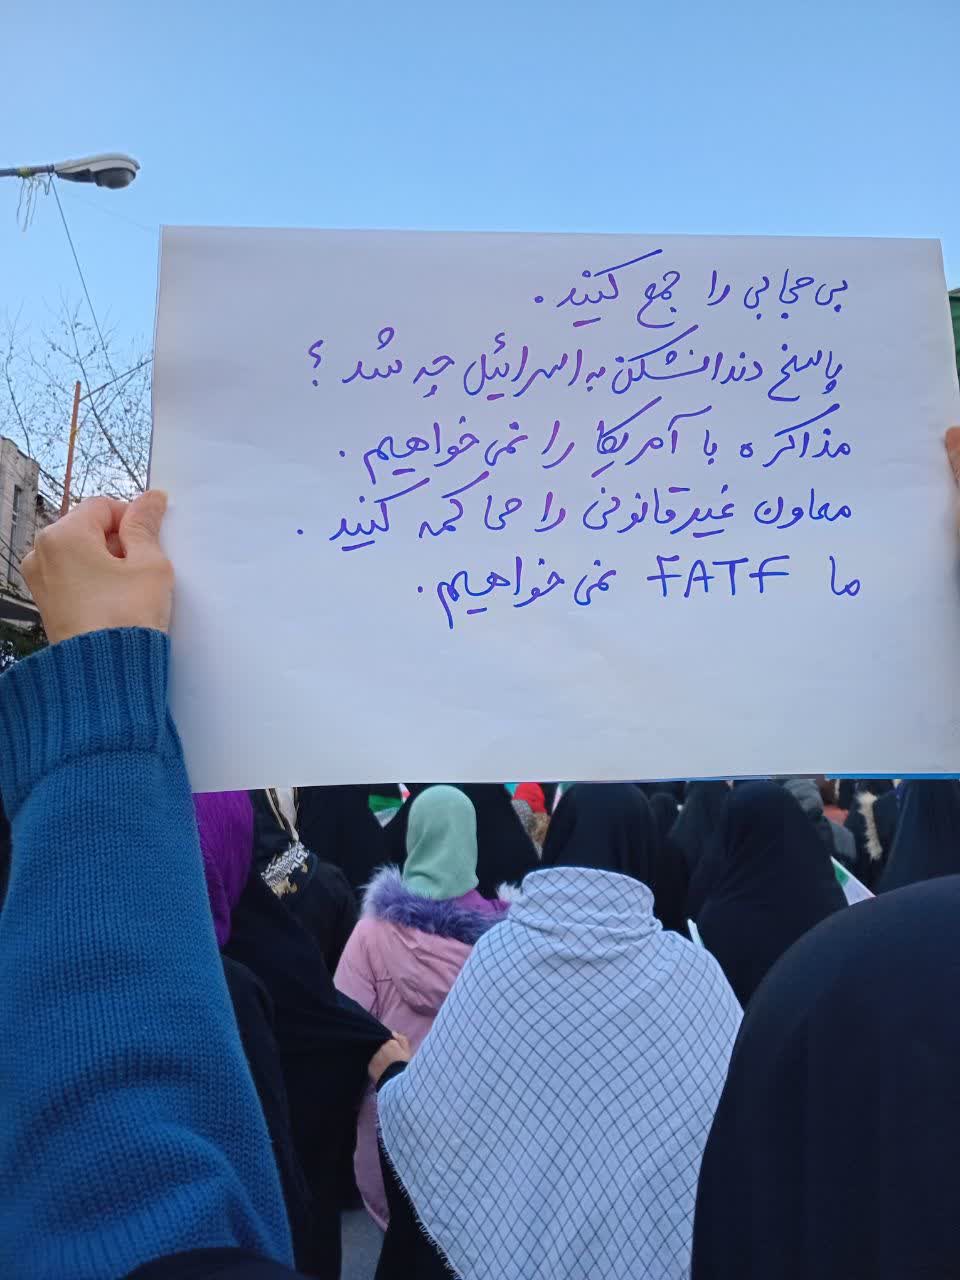 بی‌حجابی را جمع کنید.
پاسخ دندانشکن به اسرائیل چه شد؟
مذاکره با آمریکا را نمی‌خواهیم.
معاون غیرقانونی را محاکمه کنید.
ما FATF نمی‌خواهیم.